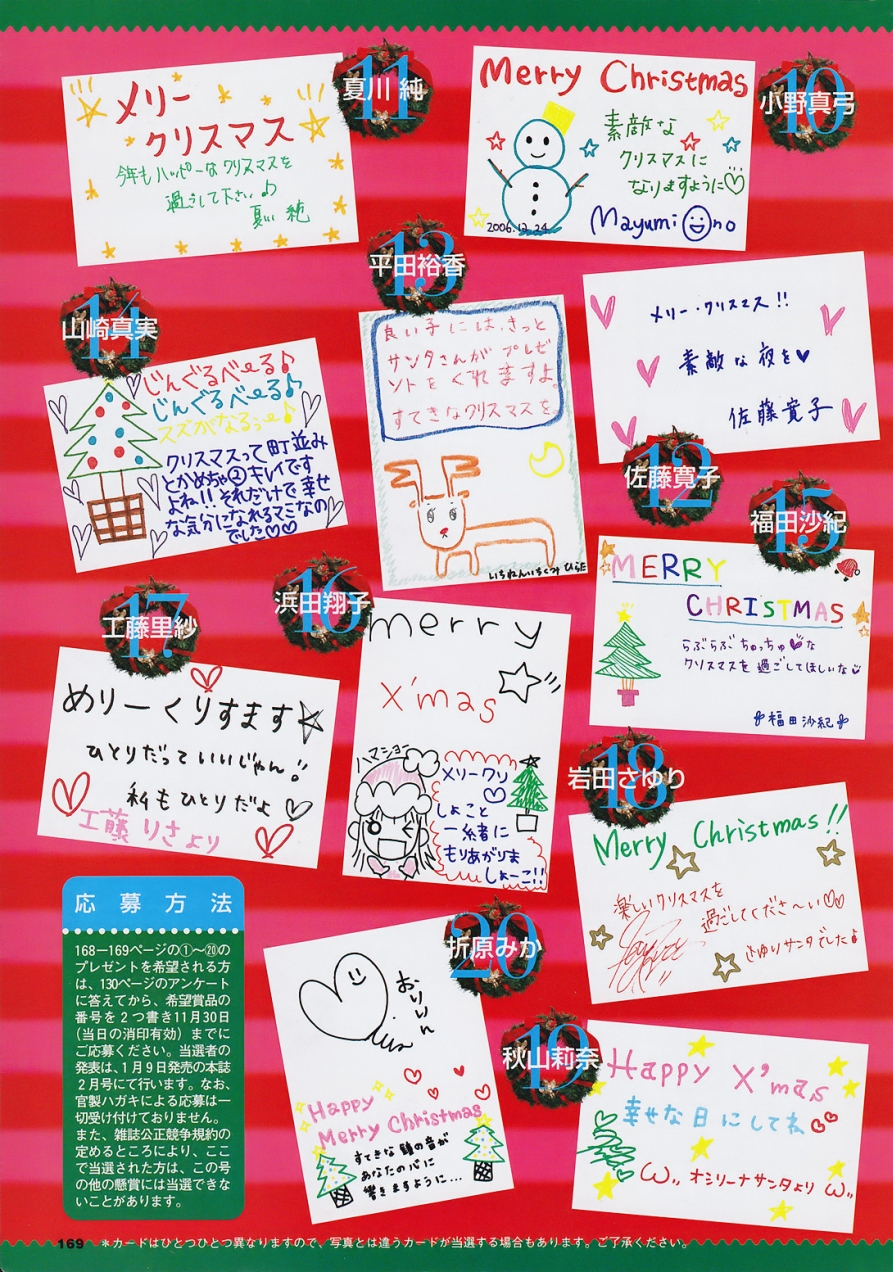 11
夏川 純
メリー
クリスマス
今年もハッピーなクリスマスを
過ごして下さい♪
夏川 純
10
小野真弓
Merry Christmas
素敵な
クリスマスに
なりますように♡
2006.12.24
Mayumi Ono
13
平田裕香
良い子には、きっと
サンタさんがプレゼ
ントをくれますよ。
すてきなクリスマスを。
いちねんいちくみ ひらた
12
佐藤寛子
メリー・クリスマス!!
素敵な夜を♥
佐藤寛子
14
山崎真実
じんぐるべーる♪
じんぐるべーる♪
スズがなるっせ♪
クリスマスって町並み
とかめちゃ②キレイです
よね!!それだけで幸せ
な気分になれるマミなの
でした♡♡
15
福田沙紀
MERRY
CHRISTMAS
らぶらぶちゅっちゅ♥な
クリスマスを過ごしてほしいな
福田沙紀
16
浜田翔子
merry
X'mas
ハマショー
メリークリ
♡
しょこと
一緒に
もりあがりま
しょーこ!!
17
工藤里紗
めりーくりすます☆
ひとりだっていいじゃん!!
私もひとりだよ♡
工藤りさより
18
岩田さゆり
Merry Christmas!!
楽しいクリスマスを
過ごしてくださ〜い♡♡
さゆりサンタでした♪
20
折原みか
おりりん
Happy
Merry Christmas
すてきな鐘の音が
あなたの心に
響きますように…
19
秋山莉奈
Happy X'mas
幸せな日にしてネ
オシリーナサンタより
応募方法
168ー169ページの①〜⑳の
プレゼントを希望される方
は、130ページのアンケート
に答えてから、希望賞品の
番号を2つ書き11月30日
(当日の消印有効)までに
ご応募ください。当選者の
発表は、1月9日発売の本誌
2月号にて行います。なお、
官製ハガキによる応募は一
切受け付けておりません。
また、雑誌公正競争規約の
定めるところにより、ここ
で当選された方は、この号
の他の懸賞には当選できな
いことがあります。
169
＊カードはひとつひとつ異なりますので、写真とは違うカードが当選する場合もあります。ご了承ください。